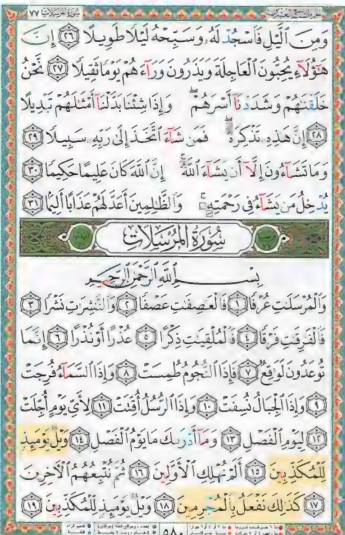 سورة المرسلات ٧٧
وَمِنَ ٱلَّيْلِ فَٱسْجُدْ لَهُۥ وَسَبِّحْهُ لَيْلًا طَوِيلًا ٢٦ إِنَّ
هَٰٓؤُلَآءِ يُحِبُّونَ ٱلْعَاجِلَةَ وَيَذَرُونَ وَرَآءَهُمْ يَوْمًا ثَقِيلًا ٢٧ نَّحْنُ
خَلَقْنَٰهُمْ وَشَدَدْنَآ أَسْرَهُمْ ۖ وَإِذَا شِئْنَا بَدَّلْنَآ أَمْثَٰلَهُمْ تَبْدِيلًا
٢٨ إِنَّ هَٰذِهِۦ تَذْكِرَةٌ ۖ فَمَن شَآءَ ٱتَّخَذَ إِلَىٰ رَبِّهِۦ سَبِيلًا ٢٩
وَمَا تَشَآءُونَ إِلَّآ أَن يَشَآءَ ٱللَّهُ ۚ إِنَّ ٱللَّهَ كَانَ عَلِيمًا حَكِيمًا ٣٠
يُدْخِلُ مَن يَشَآءُ فِى رَحْمَتِهِۦ ۚ وَٱلظَّٰلِمِينَ أَعَدَّ لَهُمْ عَذَابًا أَلِيمًۢا ٣١
سُورَةُ الْمُرْسَلَاتِ
بِسْمِ ٱللَّهِ ٱلرَّحْمَٰنِ ٱلرَّحِيمِ
وَٱلْمُرْسَلَٰتِ عُرْفًا ١ فَٱلْعَٰصِفَٰتِ عَصْفًا ٢ وَٱلنَّٰشِرَٰتِ نَشْرًا ٣
فَٱلْفَٰرِقَٰتِ فَرْقًا ٤ فَٱلْمُلْقِيَٰتِ ذِكْرًا ٥ عُذْرًا أَوْ نُذْرًا ٦ إِنَّمَا
تُوعَدُونَ لَوَٰقِعٌ ٧ فَإِذَا ٱلنُّجُومُ طُمِسَتْ ٨ وَإِذَا ٱلسَّمَآءُ فُرِجَتْ
٩ وَإِذَا ٱلْجِبَالُ نُسِفَتْ ١٠ وَإِذَا ٱلرُّسُلُ أُقِّتَتْ ١١ لِأَىِّ يَوْمٍ أُجِّلَتْ
١٢ لِيَوْمِ ٱلْفَصْلِ ١٣ وَمَآ أَدْرَىٰكَ مَا يَوْمُ ٱلْفَصْلِ ١٤ وَيْلٌ يَوْمَئِذٍ
لِّلْمُكَذِّبِينَ ١٥ أَلَمْ نُهْلِكِ ٱلْأَوَّلِينَ ١٦ ثُمَّ نُتْبِعُهُمُ ٱلْءَاخِرِينَ
١٧ كَذَٰلِكَ نَفْعَلُ بِٱلْمُجْرِمِينَ ١٨ وَيْلٌ يَوْمَئِذٍ لِّلْمُكَذِّبِينَ ١٩
٥٨٠